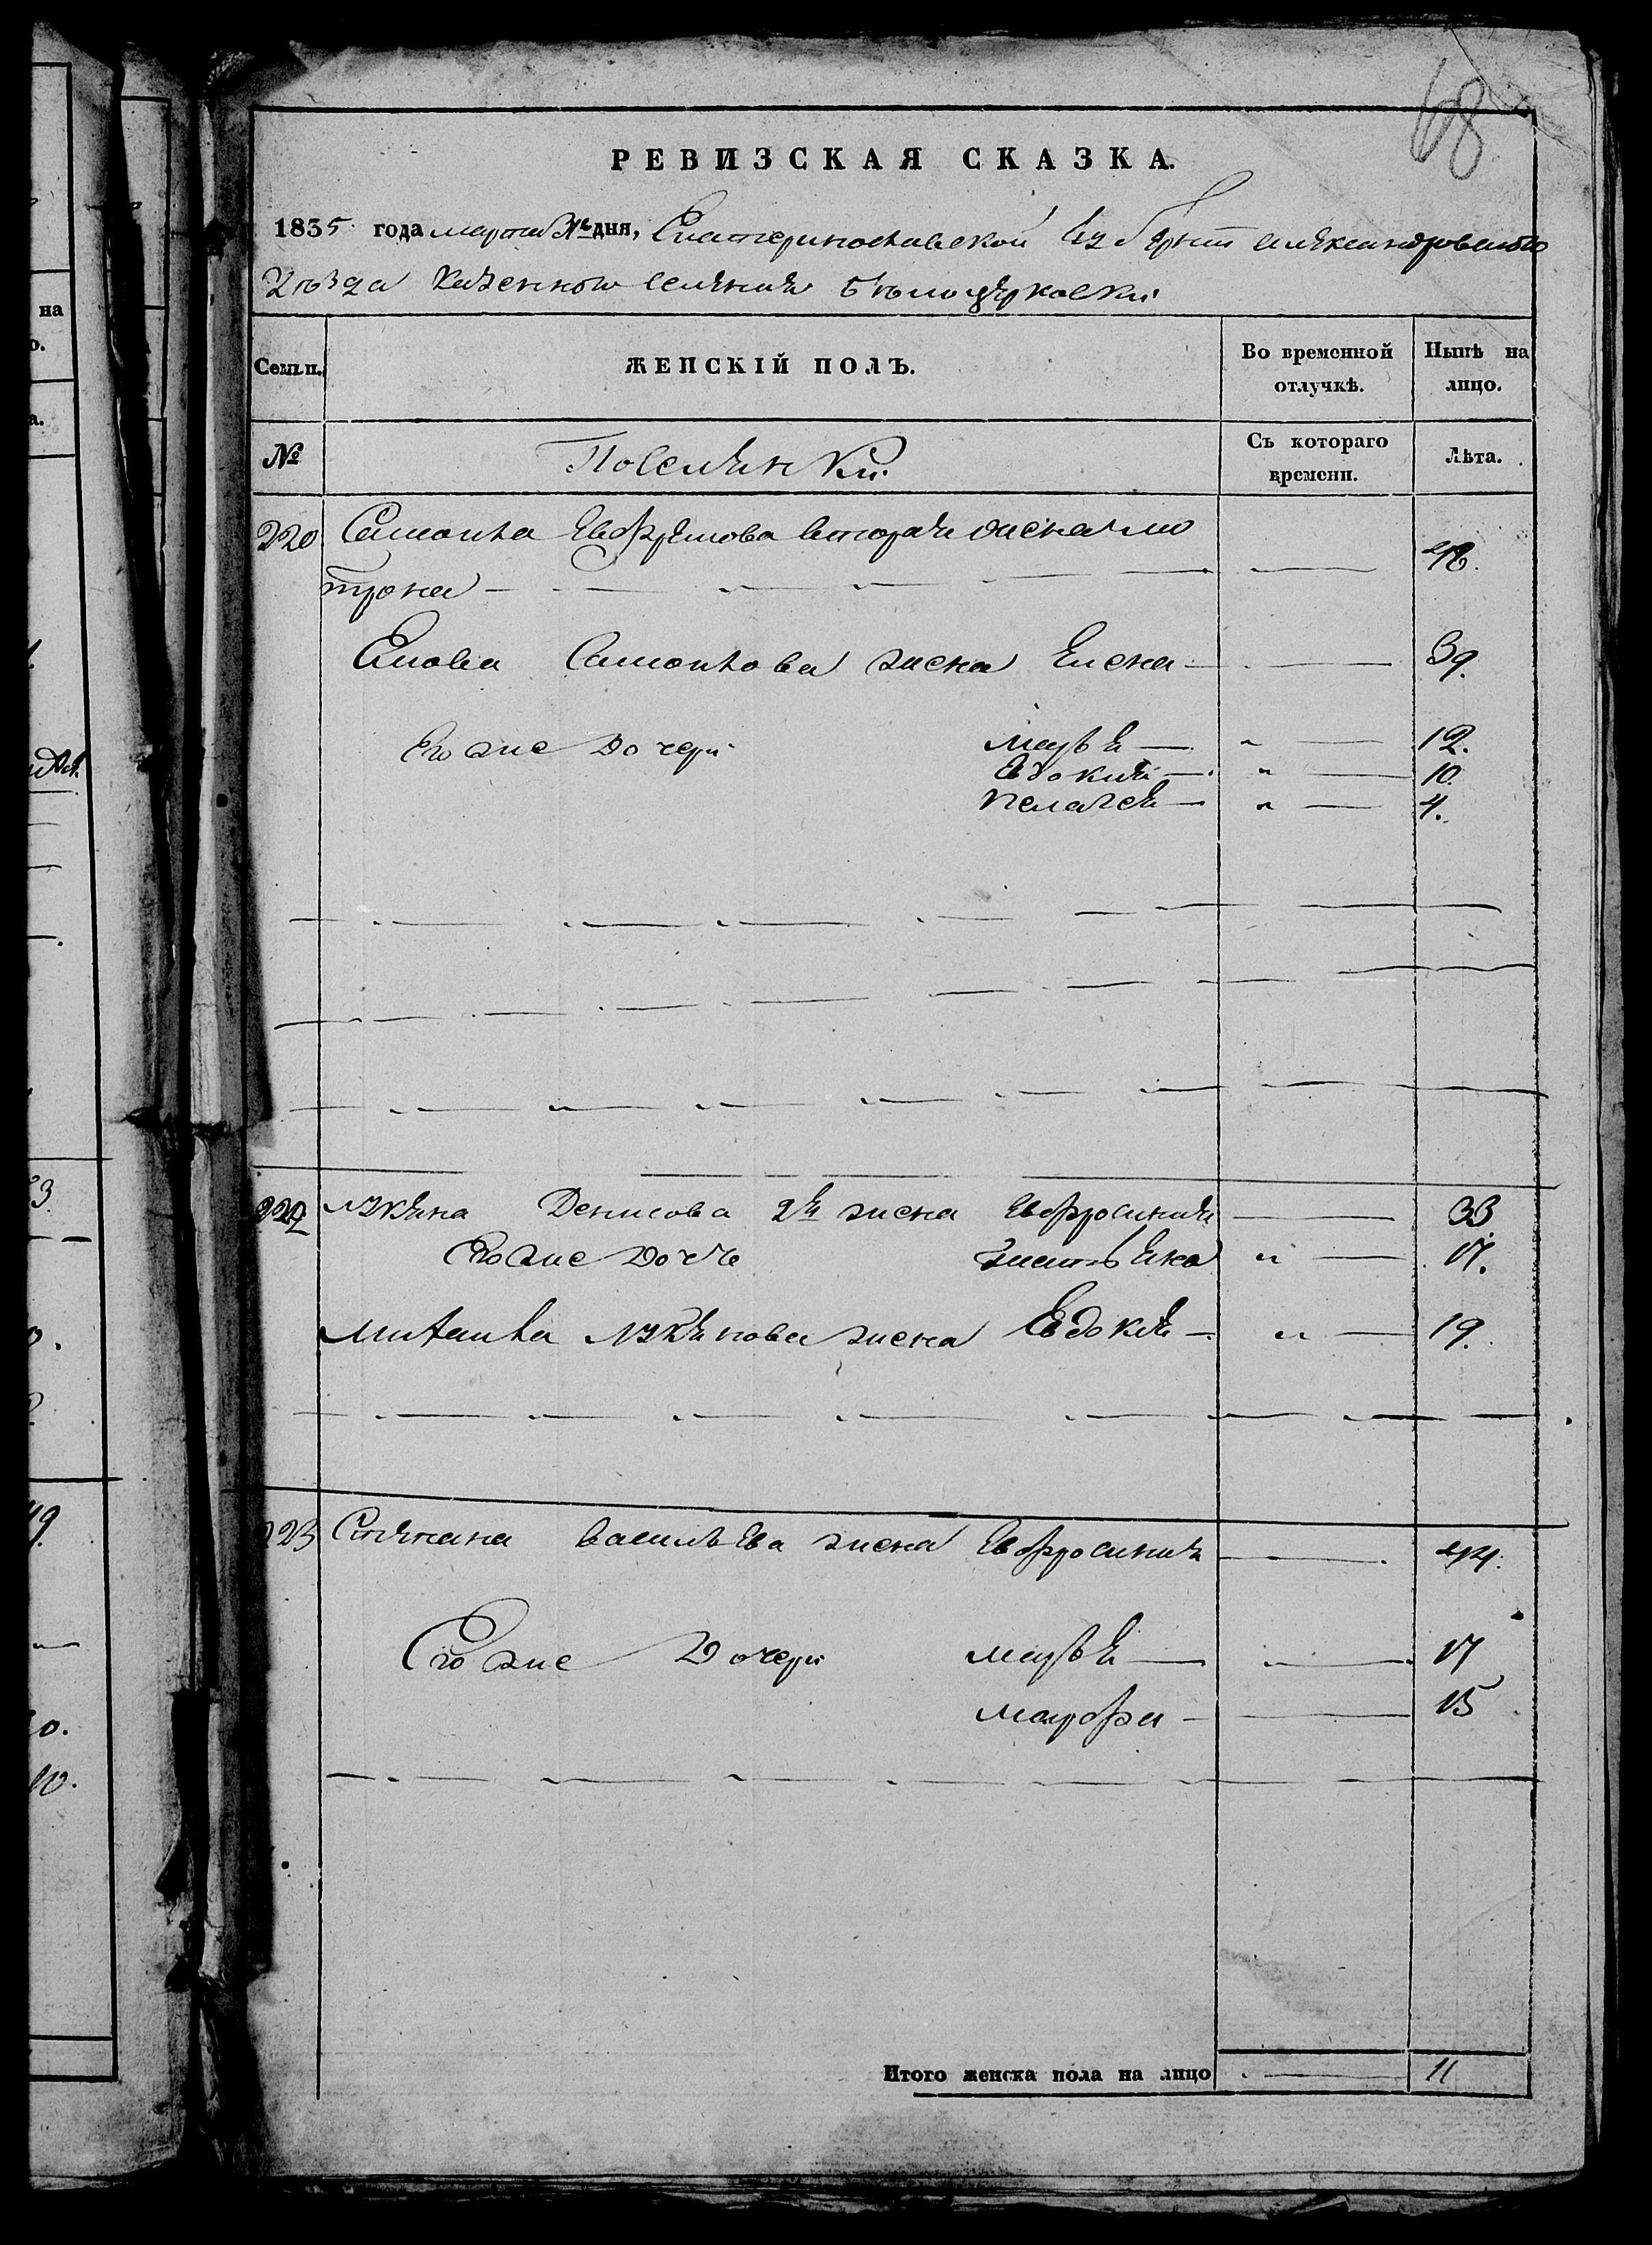 68
РЕВИЗСКАЯ СКАЗКА.
1835 года марта дня, Екатеринославской Губерніи Александровскаго
Уѣзда Казенного селенія Бѣлоцерковки
Семьи. ЖЕНСКІЙ ПОЛЪ. Во временной отлучкѣ. Нынѣ на лицо.
№ Поселянки. Съ котораго времени. Лѣта.
220 Самойла Евфремова вторая жена Мо
трона 48.
Елена 39.
Самойлова жена
Его же дочери Марья 12.
Евдокия 10
Пелагея 4.
Лукяна Денисова 2я жена Евфросиния 33
Его же дочь 17.
Михайла Лукянова жена Евдокия 19.
223 Степана Васильева жена Евфросиния 44.
Его же дочери Марья 17
Марфа 15
Итого женска пола на лицо 11